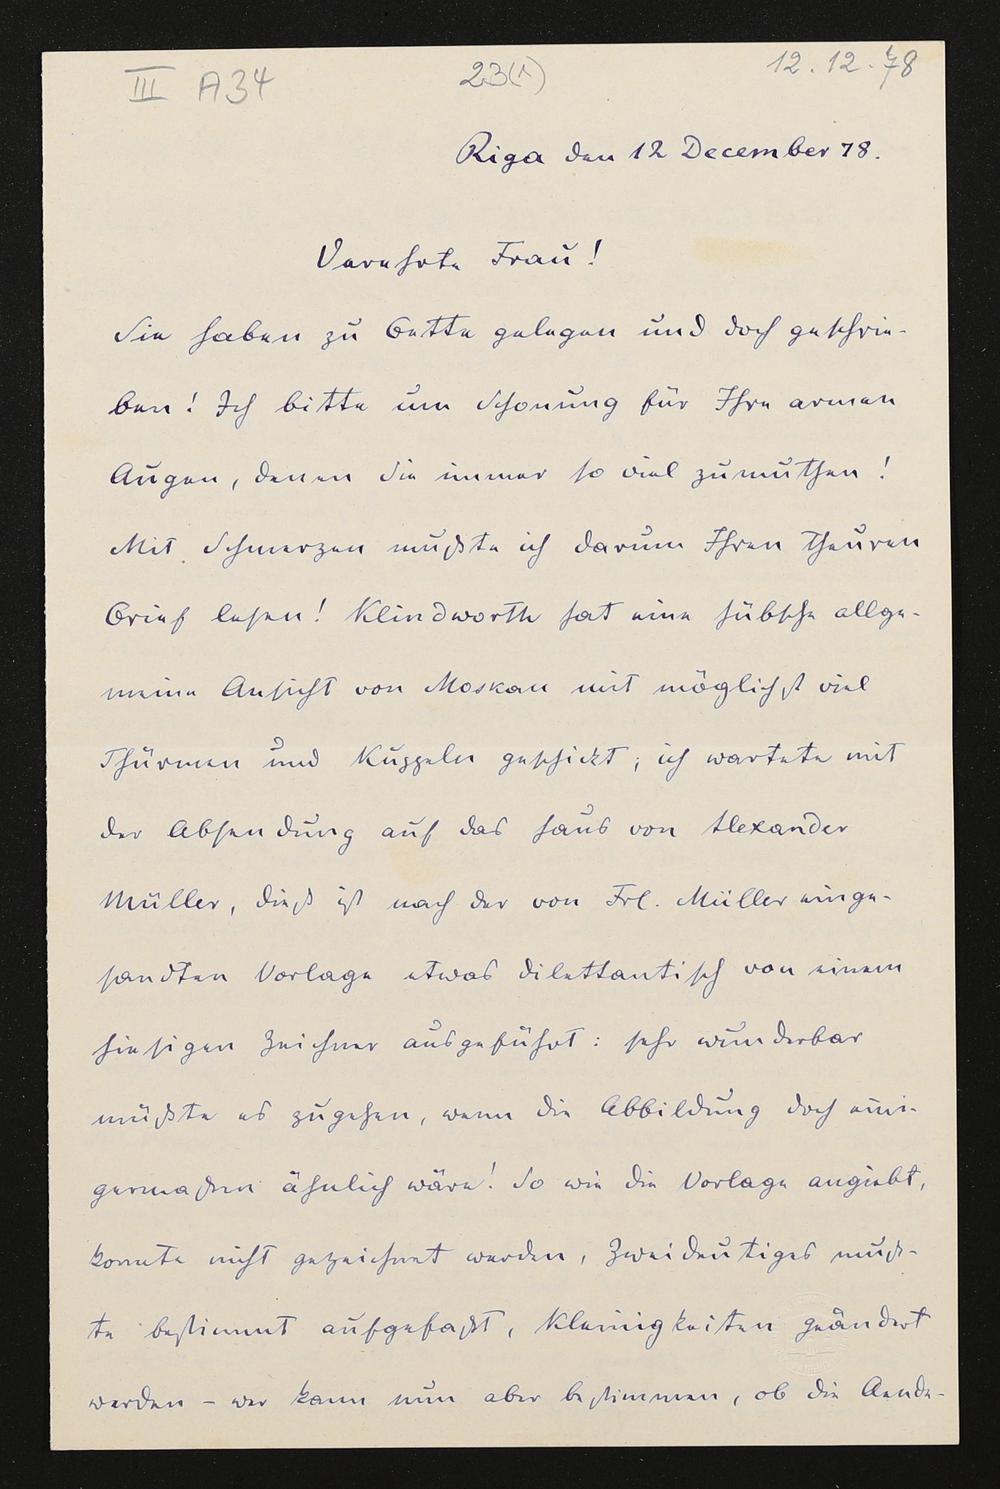 III A34
23(1)
12.12.78
Riga den 12 December 78.
Verehrte Frau!
Sie haben zu Bette gelegen und doch geschrie-
ben! Ich bitte um Schonung für Ihre armen
Augen, denen Sie immer so viel zumuthen!
Mit Schmerzen mußte ich darum Ihren theuren
Brief lesen! Klindworth hat eine hübsche allge-
meine Ansicht von Moskau mit möglichst viel
Thürmen und Kuppeln geschickt; ich wartete mit
der Absendung auf das Haus von Alexander
Müller, dieß ist nach der von Frl. Müller einge-
sandten Vorlage etwas dilettantisch von einem
hiesigen Zeichner ausgeführt: sehr wunderbar
müßte es zugehen, wenn die Abbildung doch eini-
germaßen ähnlich wäre! So wie die Vorlage angiebt,
konnte nicht gezeichnet werden, Zweideutiges muß-
te bestimmt aufgefaßt, Kleinigkeiten geändert
werden – wer kann nun aber bestimmen, ob die Aende-